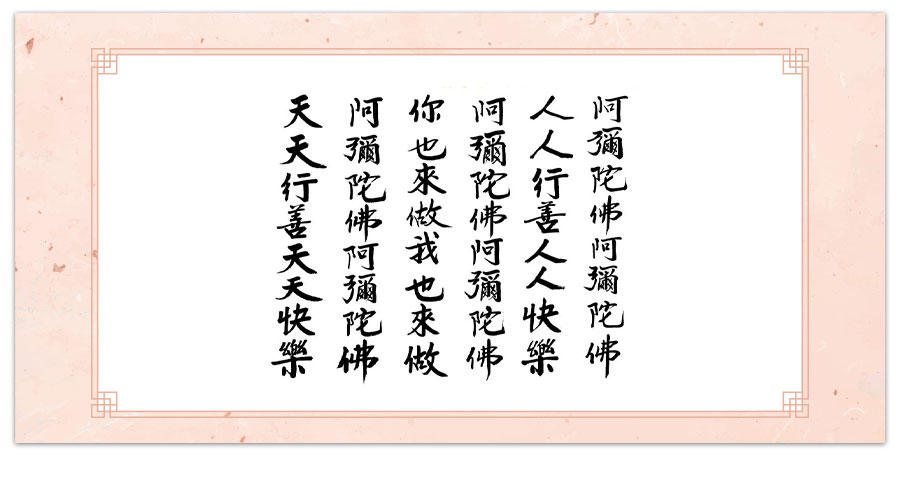 阿彌陀佛阿彌陀佛
人人行善人人快樂
阿彌陀佛阿彌陀佛
你也來做我也來做
阿彌陀佛阿彌陀佛
天天行善天天快樂